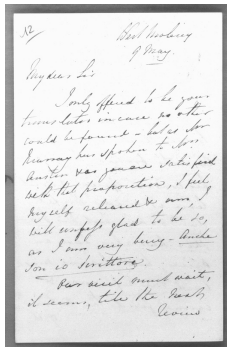 12
West Molesey
9 May.
My dear Sir
I only offered to be your
translator in case no other
could be found – but as Mr
Murray has spoken to Mrs
Austin & as you are satisfied
with that proposition, I feel
myself released & own, I
will confess glad to be so,
as I am very busy – Anche
son io scrittore.
Our visit must wait,
it seems, till the